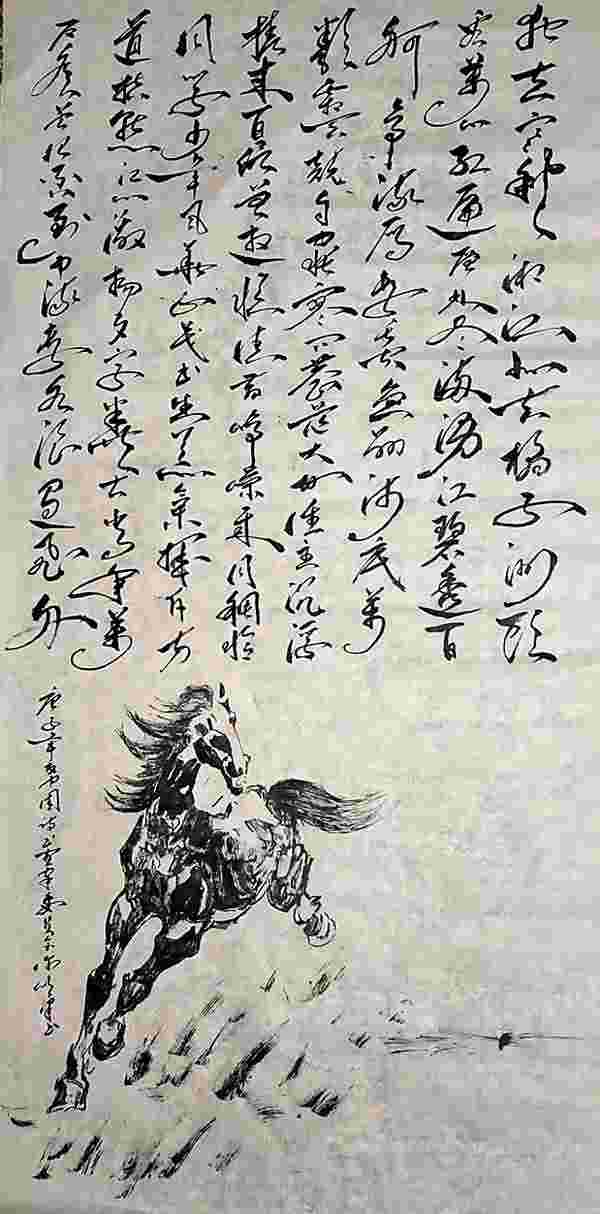 独立寒秋湘江北去橘子洲头
看万山红遍层林尽染漫江碧透百
舸争流鹰击长空鱼翔浅底万
类霜天竞自由寥廓苍茫大地谁主沉浮
携来百侣曾游忆往昔峥嵘岁月稠恰
同学少年风华正茂书生意气挥斥方
遒指点江山激扬文字粪土当年万
户侯曾记否到中流击水浪遏飞舟
庚子年